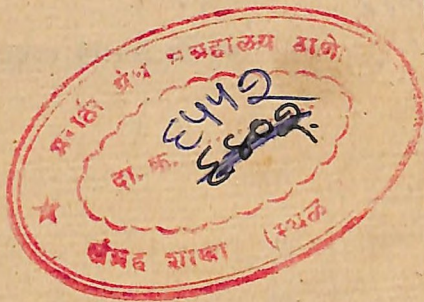 मराठी ग्रंथ संग्रहालय ठाणे
दा. क्र. ६५५२
संग्रह शाखा (स्थळ